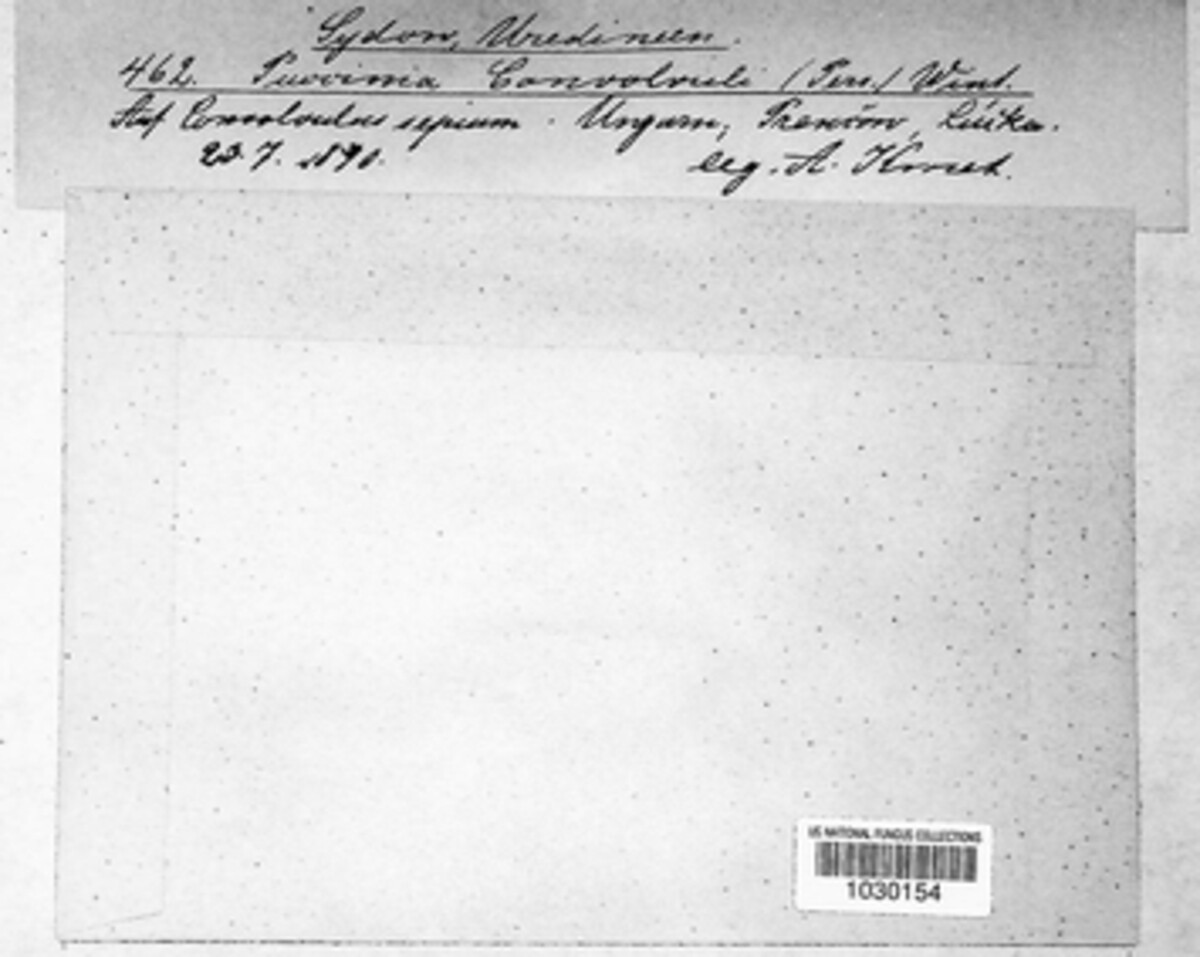 Sydow, Uredineen.
462. Puccinia Convolvuli (Pers.) Wint.
Auf Convolvulus sepium. Ungarn, Trencsén,
23.7.1890. leg. A. Kmet.
US NATIONAL FUNGUS COLLECTIONS
1030154